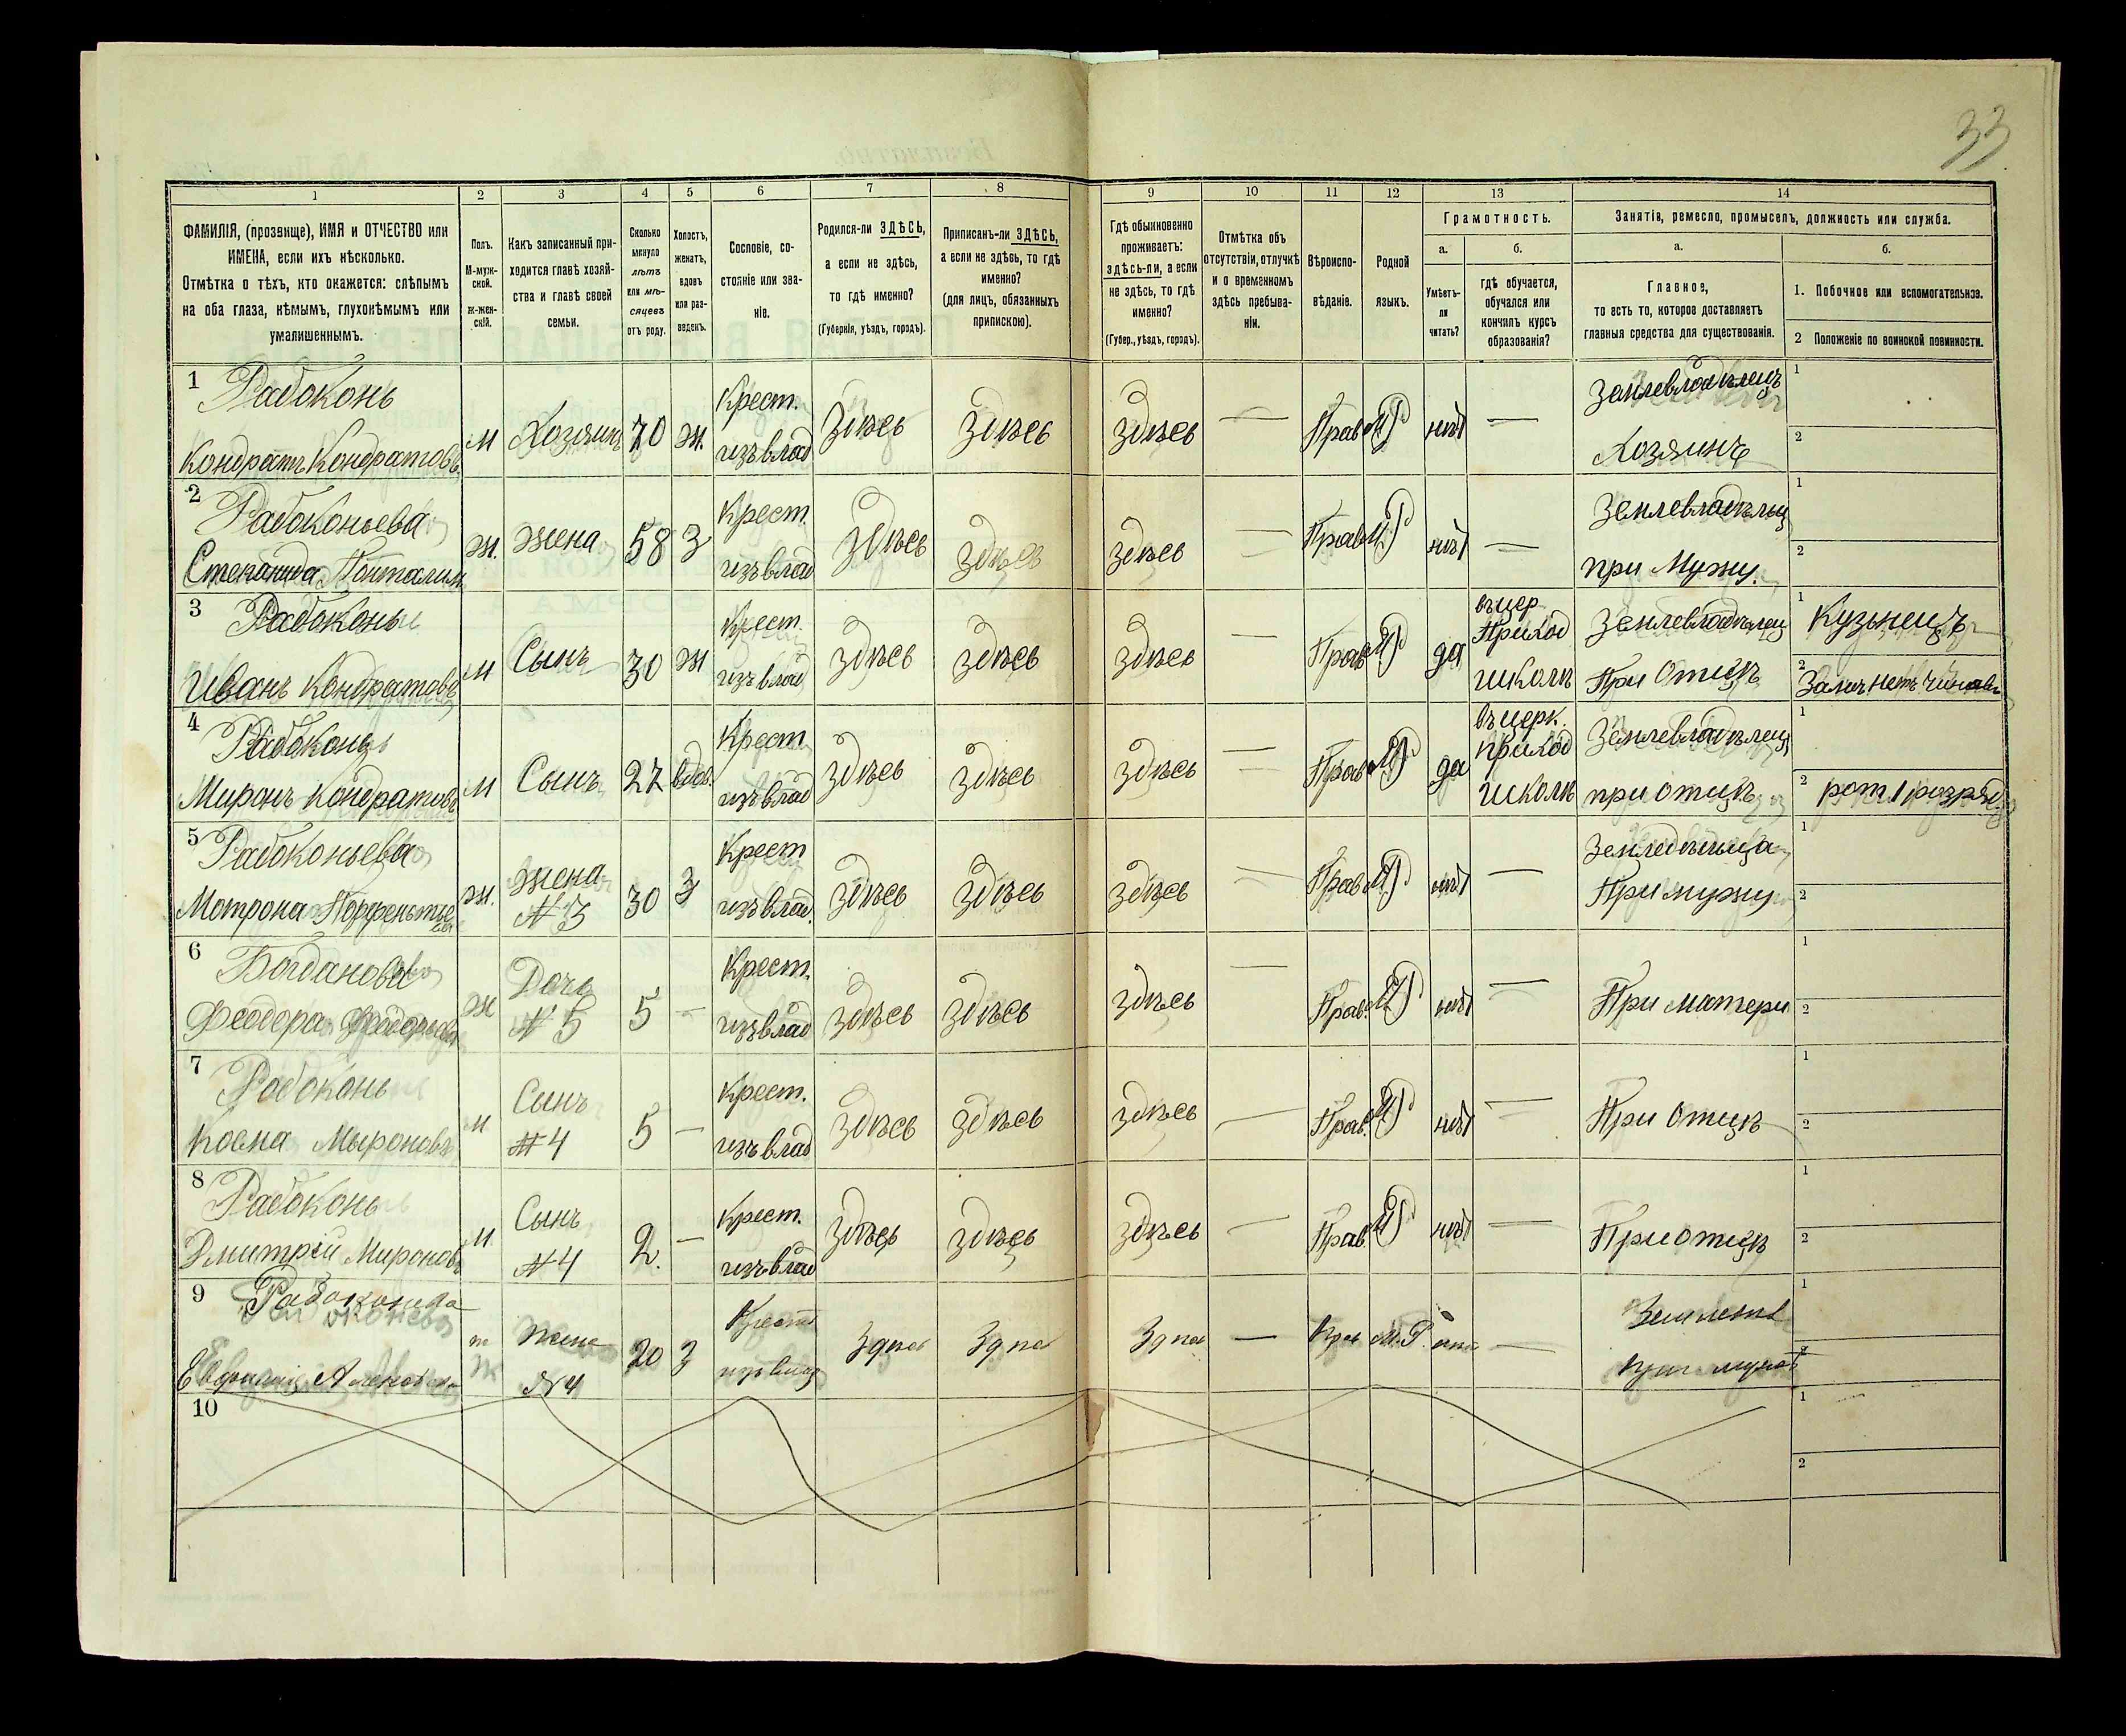 33
1 2 3 4 5 6 7 8 9 10 11 12 13 14
ФАМИЛІЯ, (прозвище), ИМЯ и ОТЧЕСТВО или
ИМЕНА, если ихъ нѣсколько.
Отмѣтка о тѣхъ, кто окажется: слѣпымъ
на оба глаза, нѣмымъ, глухонѣмымъ или
умалишеннымъ.
Полъ.
М-муж-
ской.
Ж-жен-
скій.
Какъ записанный при-
ходится главѣ хозяй-
ства и главѣ своей
семьи.
Сколько
минуло
лѣтъ
или мѣ-
сяцевъ
отъ роду.
Холостъ,
женатъ,
вдовъ
или раз-
веденъ.
Сословіе, со-
стояніе или зва-
ніе.
Родился-ли ЗДѢСЬ,
а если не здѣсь,
то гдѣ именно?
(Губернія, уѣздъ, городъ).
Приписанъ-ли ЗДѢСЬ,
а если не здѣсь, то гдѣ
именно?
(для лицъ, обязанныхъ
припискою).
Гдѣ обыкновенно
проживаетъ:
здѣсь-ли, а если
не здѣсь, то гдѣ
именно?
(Губер., уѣздъ, городъ).
Отмѣтка объ
отсутствіи, отлучкѣ
и о временномъ
здѣсь пребыва-
ніи.
Вѣроиспо-
вѣданіе.
Родной
языкъ.
Грамотность.
а.
Умѣетъ-
ли
читать?
б.
гдѣ обучается,
обучался или
кончилъ курсъ
образованія?
Занятія, ремесло, промыселъ, должность или служба.
а.
Главное,
то есть то, которое доставляетъ
главныя средства для существованія.
б.
1. Побочное или вспомогательное.
2 Положеніе по воинской повинности.
1 Рабоконь Крест. Землевладѣлецъ 1
Кондратъ Кондратовъ М Хозяинъ 70 ж. изъ влад Здѣсь Здѣсь Здѣсь — Прав М.Р нѣтъ — Хозяинъ 2
2 Рабоконьева Крест. Землевладѣльц 1
Степанида ж. жена 58 З изъ влад Здѣсь Здѣсь Здѣсь — Прав М.Р нѣтъ — при Мужу. 2
3 Рабоконь Крест. въ цер Приход Землевладѣлец 1 Кузьнецъ
Иванъ Кондратовъ М Сынъ 30 ж изъ влад здѣсь здѣсь здѣсь — Прав М.Р да школѣ При Отцѣ 2
4 Рабоконь Крест въ церк. приход Землевладѣлец 1
Миронъ Кондратовъ М Сынъ 27 вдов. изъ влад здѣсь здѣсь здѣсь — Прав М.Р да школѣ при отцѣ 2 рат 1 розряд
5 Рабоконьева Крест 1
Мотрона ж. жена № 3 30 З изъ влад. здѣсь здѣсь здѣсь — Прав М.Р нѣтъ — При мужу 2
6 Богданова Крест. 1
Феодора ж Дочь № 5 5 — изъ влад здѣсь здѣсь здѣсь — Прав. М.Р нѣтъ — При матери 2
7 Рабоконь Крест. 1
Косма Мыроновъ М Сынъ № 4 5 — изъ влад здѣсь здѣсь здѣсь — Прав. М.Р нѣтъ — При Отцѣ 2
8 Рабоконь Крест. 1
Дмитрій Мироновъ М Сынъ № 4 2. — изъ влад здѣсь здѣсь здѣсь — Прав М.Р нѣтъ — При отцѣ 2
9 Рабоконева Крест 1
ж Жена № 4 20 З изъ влад Здѣс Здѣс Здѣс — Прав М.Р. — при мужѣ 2
10 1
2